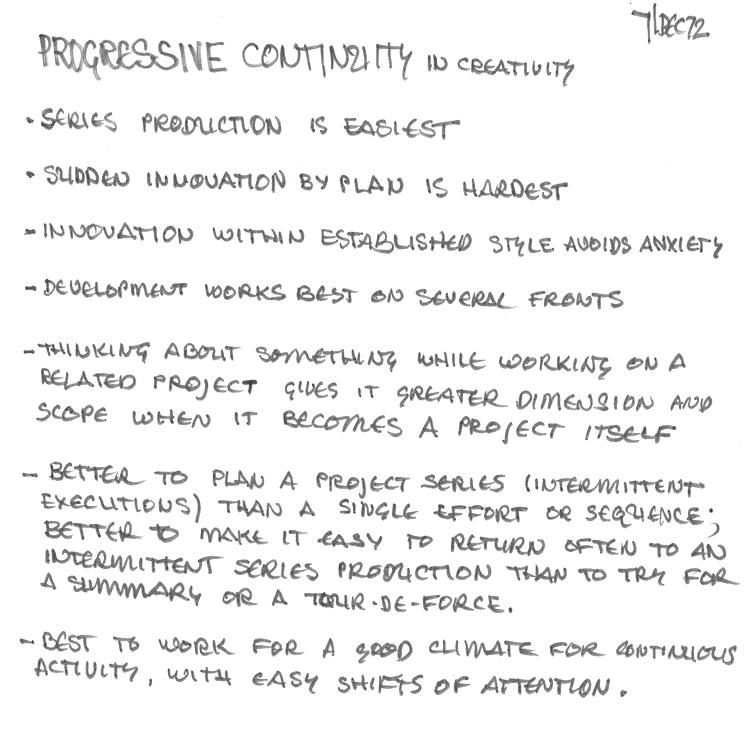 7/DEC72
PROGRESSIVE CONTINUITY IN CREATIVITY
• SERIES PRODUCTION IS EASIEST
• SUDDEN INNOVATION BY PLAN IS HARDEST
- INNOVATION WITHIN ESTABLISHED STYLE AVOIDS ANXIETY
- DEVELOPMENT WORKS BEST ON SEVERAL FRONTS
- THINKING ABOUT SOMETHING WHILE WORKING ON A
RELATED PROJECT GIVES IT GREATER DIMENSION AND
SCOPE WHEN IT BECOMES A PROJECT ITSELF
- BETTER TO PLAN A PROJECT SERIES (INTERMITTENT
EXECUTIONS) THAN A SINGLE EFFORT OR SEQUENCE;
BETTER TO MAKE IT EASY TO RETURN OFTEN TO AN
INTERMITTENT SERIES PRODUCTION THAN TO TRY FOR
A SUMMARY OR A TOUR-DE-FORCE.
- BEST TO WORK FOR A GOOD CLIMATE FOR CONTINUOUS
ACTIVITY, WITH EASY SHIFTS OF ATTENTION.